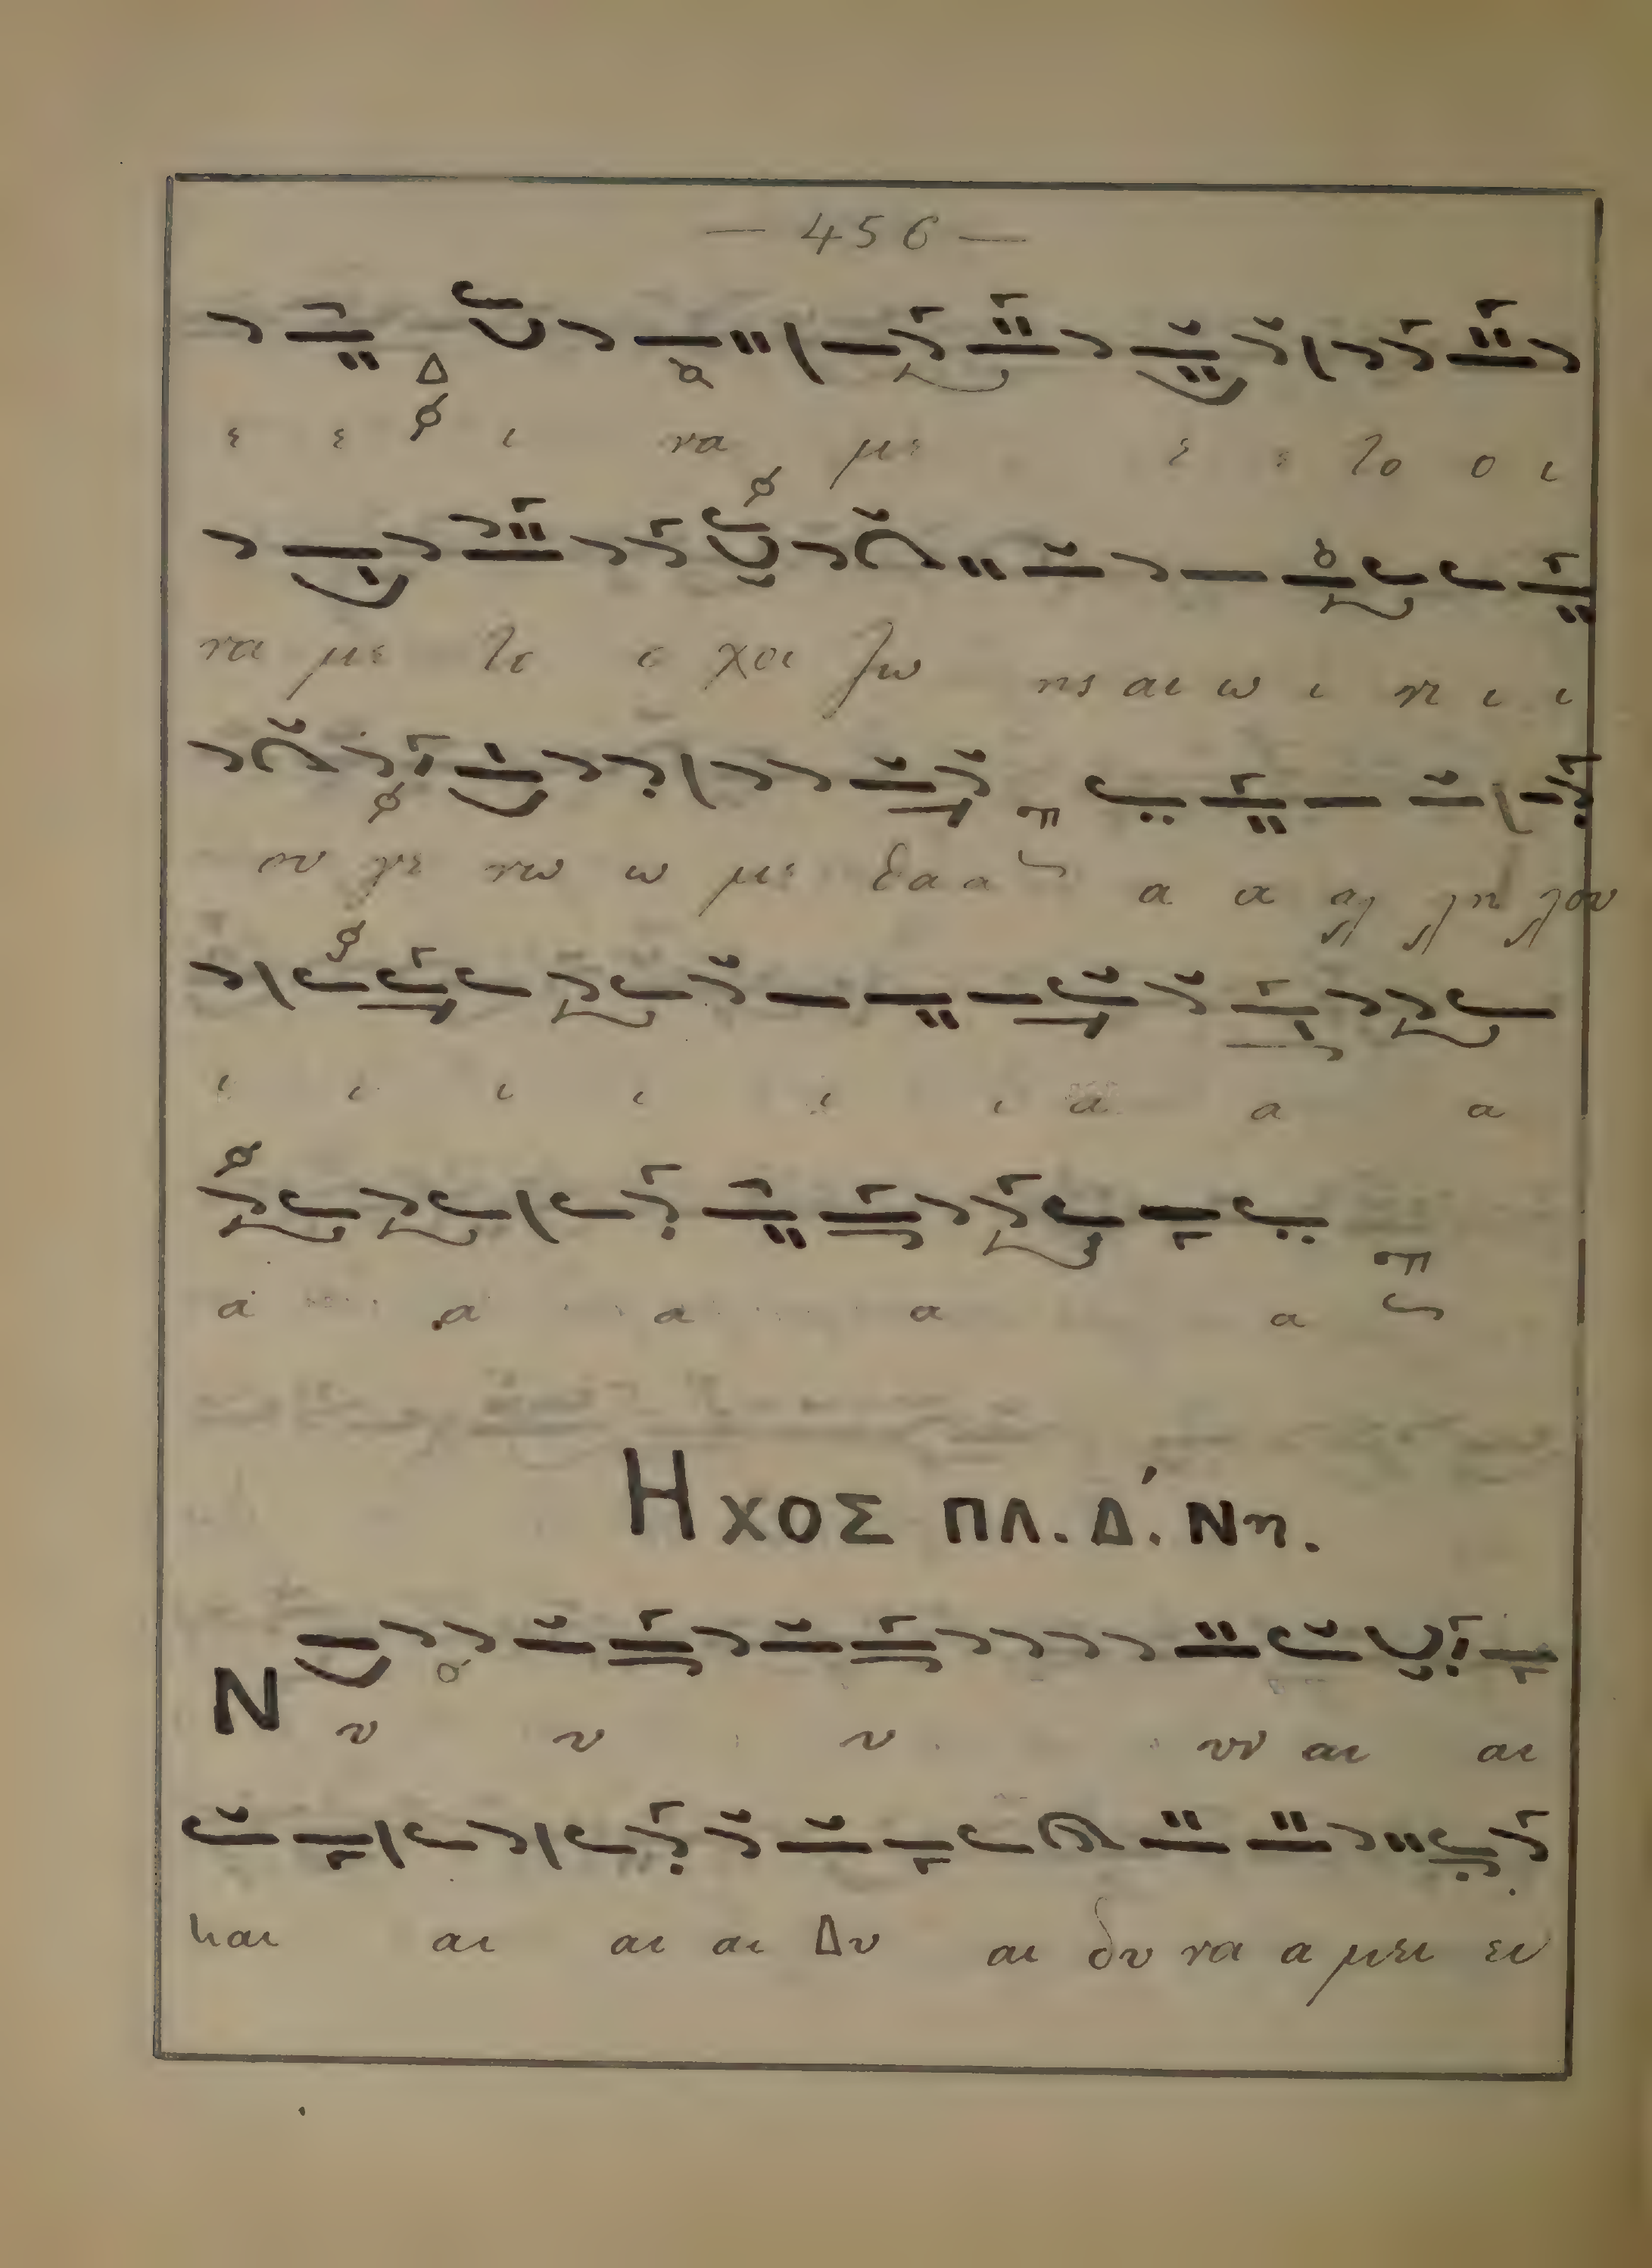 — 456 —
ε ε ι να με ε ε το ο ι
να με το ο χοι ζω ης αι ω ι νι ι ι
ου γε νω ω με θα α α α αλ λη λου
ι ι ι ι ι ι α α α
α α α α α
Ηχος πλ. Δ΄. Νη.
Ν υ υ υ υν αι αι
και αι αι αι Δυ αι δυ να α μει ει